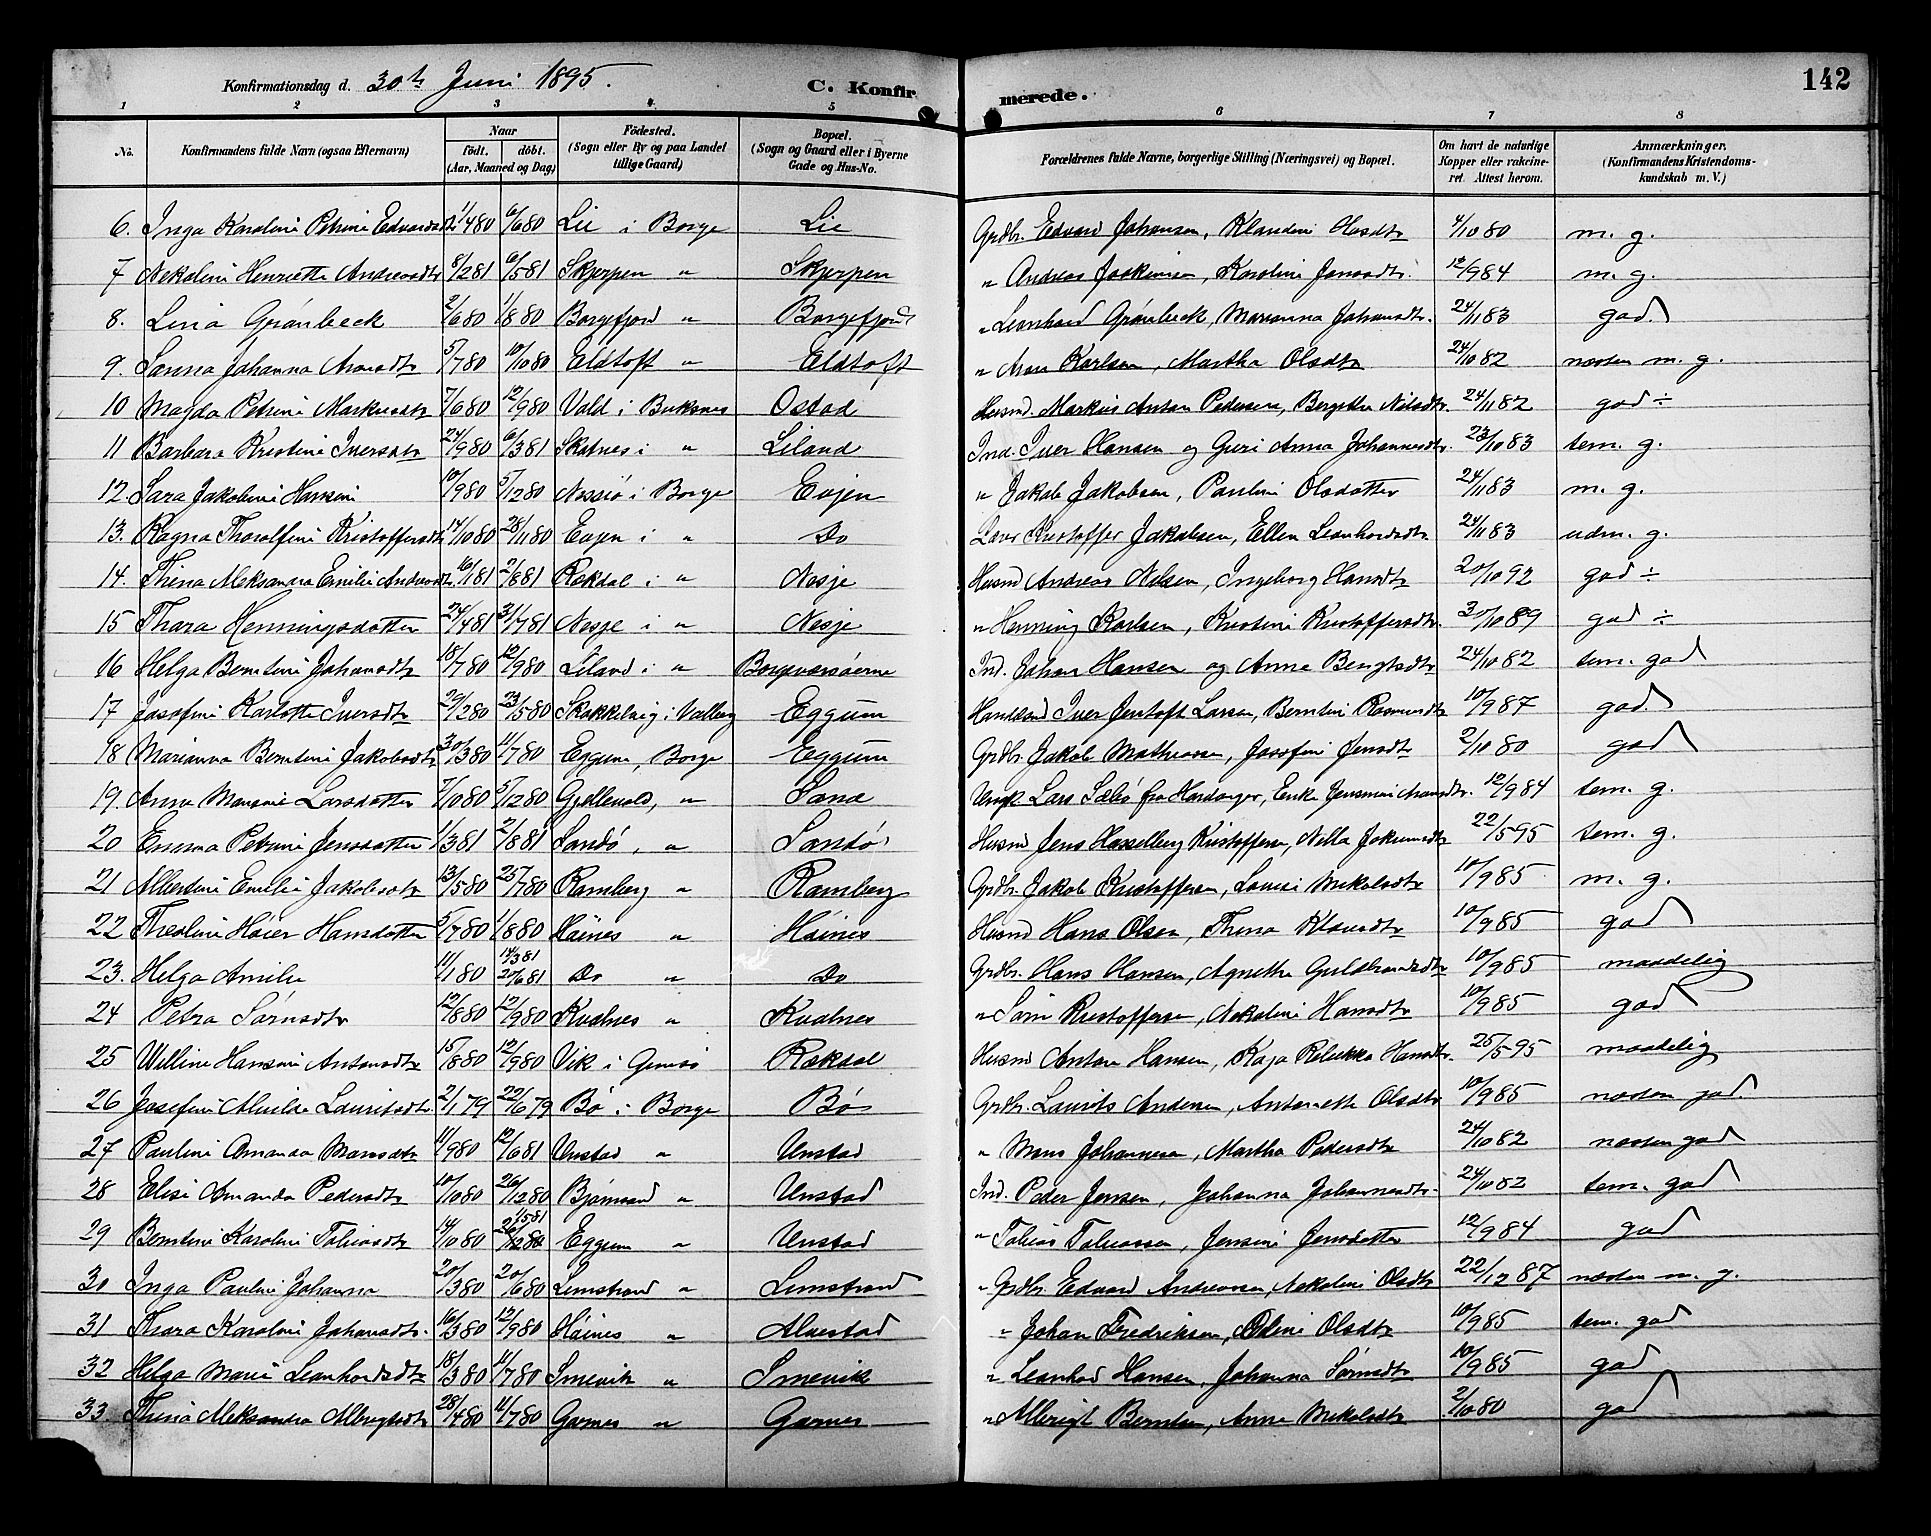 Konfirmationsdag d. 30th Juni 1895. C. Konfir merede. 142
1 2 3 4 5 6 7 8
No. Konfirmandens fulde Navn (ogsaa Efternavn) Naar födt. döbt. (Aar, Maaned og Dag) Födested. (Sogn eller By og paa Landet tillige Gaard) Bopæl. (Sogn og Gaard eller i Byerne Gade og Hus-No. Forældrenes fulde Navne, borgerlige Stilling (Næringsvei) og Bopæl. Om havt de naturlige Kopper eller vakcineret. Attest herom. Anmærkninger. (Konfirmandens Kristendomskundskab m. V.)
6. Inga Karolini Petrini Edvardsdtr 1/4 80 6/6 80 Lie i Borge Lie Grdbr. Edvard Johansen, Klaudini Hasdtr 4/10 80 m. g.
7 Nekolini Henriette Andreasdtr 8/2 81 6/5 81 Skjerpen " Skjerpen " Andreas Joakimsen, Karolini Jonsdtr. 12/9 84 m. g.
8. Lina Grönbeck 2/6 80 1/8 80 Borgefjord " Borgefjord " Leonhard Grönbeck, Marianna Johansdtr. 24/11 83 god.
9. Sanna Johanna Aronsdtr 5/7 80 10/10 80 Eldtoft " Eldtoft " Aron Karlsen, Martha Olsdtr 24/10 82 næsten m. g.
10 Magda Petrini Markusdtr 7/6 80 12/9 80 Vold i Buksnes Ostad Husmd. Markus Anton Pedersen, Bergetha Nilsdtr. 24/11 82 god ÷
11 Barbara Kristini Iversdtr 24/9 80 6/3 81 Skotnes i " Liland Ind. Iver Hansen og Guri Anna Johannesdtr. 23/10 83 tem. g.
12. Sara Jakobini Hansini 10/9 80 5/12 80 Nessiö i Borge Evjen " Jakob Jakobsen, Paulini Olsdatter 24/11 83 m. g.
13. Ragna Thoralfini Kristoffersdtr 14/10 80 28/11 80 Evjen i " Do Kristoffer Jakobsen, Ellen Leonhardsdtr. 24/11 83 udm. g.
14. Thina Aleksandra Emilie Andreasdtr 16/1 81 2/8 81 Rekdal i " Nesje Husmd Andreas Nilsen, Ingeborg Hansdtr 20/10 92 god ÷
15 Thora Henningsdatter 24/4 81 31/7 81 Nesje i " Nesje " Henning Karlsen, Kristini Kristoffersdtr. 30/10 89 god ÷
16 Helga Berntini Johansdtr 18/7 80 12/9 80 Liland i " Borgeværöerne Ind. Johan Hansen og Anna Bengtsdtr 24/10 82 tem. god
17 Josefini Karlotte Iversdtr 29/2 80 23/5 80 Skokkelvig i Valberg Eggum Iver Jentoft Larsen, Berntini Rasmusdtr 10/9 87 god.
18 Marianna Berntini Jakobsdtr 30/3 80 11/7 80 Eggum, Borge Eggum Grdbr. Jakob Mathiassen, Josefini Jensdtr 2/10 80 god
19. Anna Larsdatter 7/10 80 5/12 80 Gjellevold, " Sand Ungk. Lars Sæbö fra Hardanger, Enke Jensmini Aronsdtr. 12/9 84 tem. g.
20 Emma Petrini Jensdatter 1/3 81 2/8 81 Sandö, " Sandö Husmd Jens Hasselberg Kristoffersen, Nilla Jokumsdtr 22/5 95 tem. g.
21 Albertini Emilie Jakobsdtr 13/5 80 25/7 80 Ramberg " Ramberg Grdbr. Jakob Kristoffersen, Lovisi Nekolsdtr 10/9 85 m. g.
22 Theolini Höier Hansdatter 5/7 80 1/8 80 Höines " Höines Husmd Hans Olsen, Thina Klausdtr 10/9 85 god
23. Helga Amilie 11/1 80 14/3 81 20/6 81 Do " Do Grdbr. Hans Hansen, Agnetha Guldbrandsdtr 10/9 85 maadelig
24 Petra Sörnsdtr 12/8 80 12/9 80 Kvalnes " Kvalnes " Sörn Kristoffersen, Nekolini Hansdtr 10/9 85 god
25 Villine Hansini Antonsdtr 15/8 80 12/9 80 Vik i Gimsö Rekdal Husmd Anton Hansen, Kaja Rebekka Hansdtr. 25/5 95 maadelig
26 Josefini Alvilda Lauritsdtr. 2/1 79 22/6 79 Bö i Borge Bö Grdbr. Laurits Andersen, Antonette Olsdtr 10/9 85 næsten god.
27 Paulini Amanda Monsdtr 11/9 80 12/6 81 Unstad " Unstad " Mons Johannesen, Martha Pedersdtr 24/10 82 næsten god
28 Elisi Amanda Pedersdtr 10/10 80 26/12 80 Björnsand " Unstad Ind. Peder Jensen, Johanna Johannesdtr. 24/10 82 tem. god
29 Berntini Karolini Tobiasdtr 14/10 80 1/5 81 26/12 80 Eggum " Unstad " Tobias Tobiassen, Jensini Jensdatter 12/9 84 god
30 Inga Paulini Johanna 20/3 80 20/6 80 Limstrand " Limstrand " Grdbr. Edvard Andreassen, Nekolini Olsdtr 22/12 87 næsten m. g.
31 Thora Karolini Johansdtr. 16/3 80 12/9 80 Höines " Alvestad " Johan Fredriksen, Olini Olsdtr 10/9 85 tem. god
32 Helga Maria Leonhardsdtr 18/3 80 11/7 80 Smevik " Smevik " Leonhard Hansen, Johanna Sörnsdtr 10/9 85 god
33. Thina Aleksandra Albrigtsdtr 28/4 80 11/7 80 Garnes " Garnes " Albrigt Berntsen, Anna Nekolsdtr 2/10 80 god